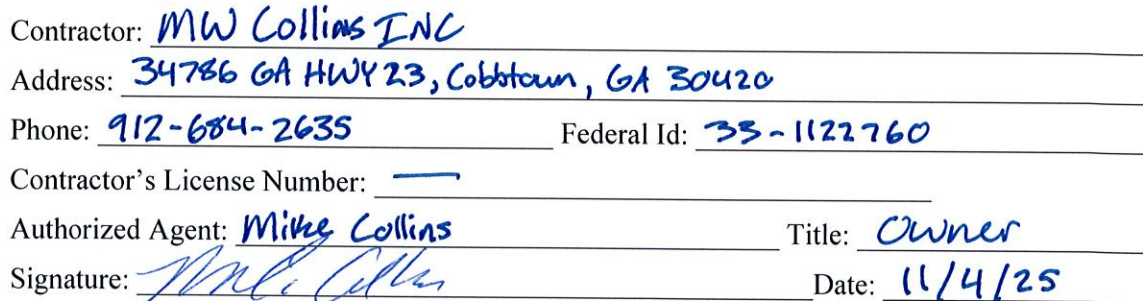 Contractor: MW Collins INC
Address: 34786 GA HWY 23, Cobbtown, GA 30420
Phone: 912-684-2635 Federal Id: 33-1122760
Contractor's License Number: —
Authorized Agent: Mike Collins Title: Owner
Signature: Mike Collins Date: 11/4/25